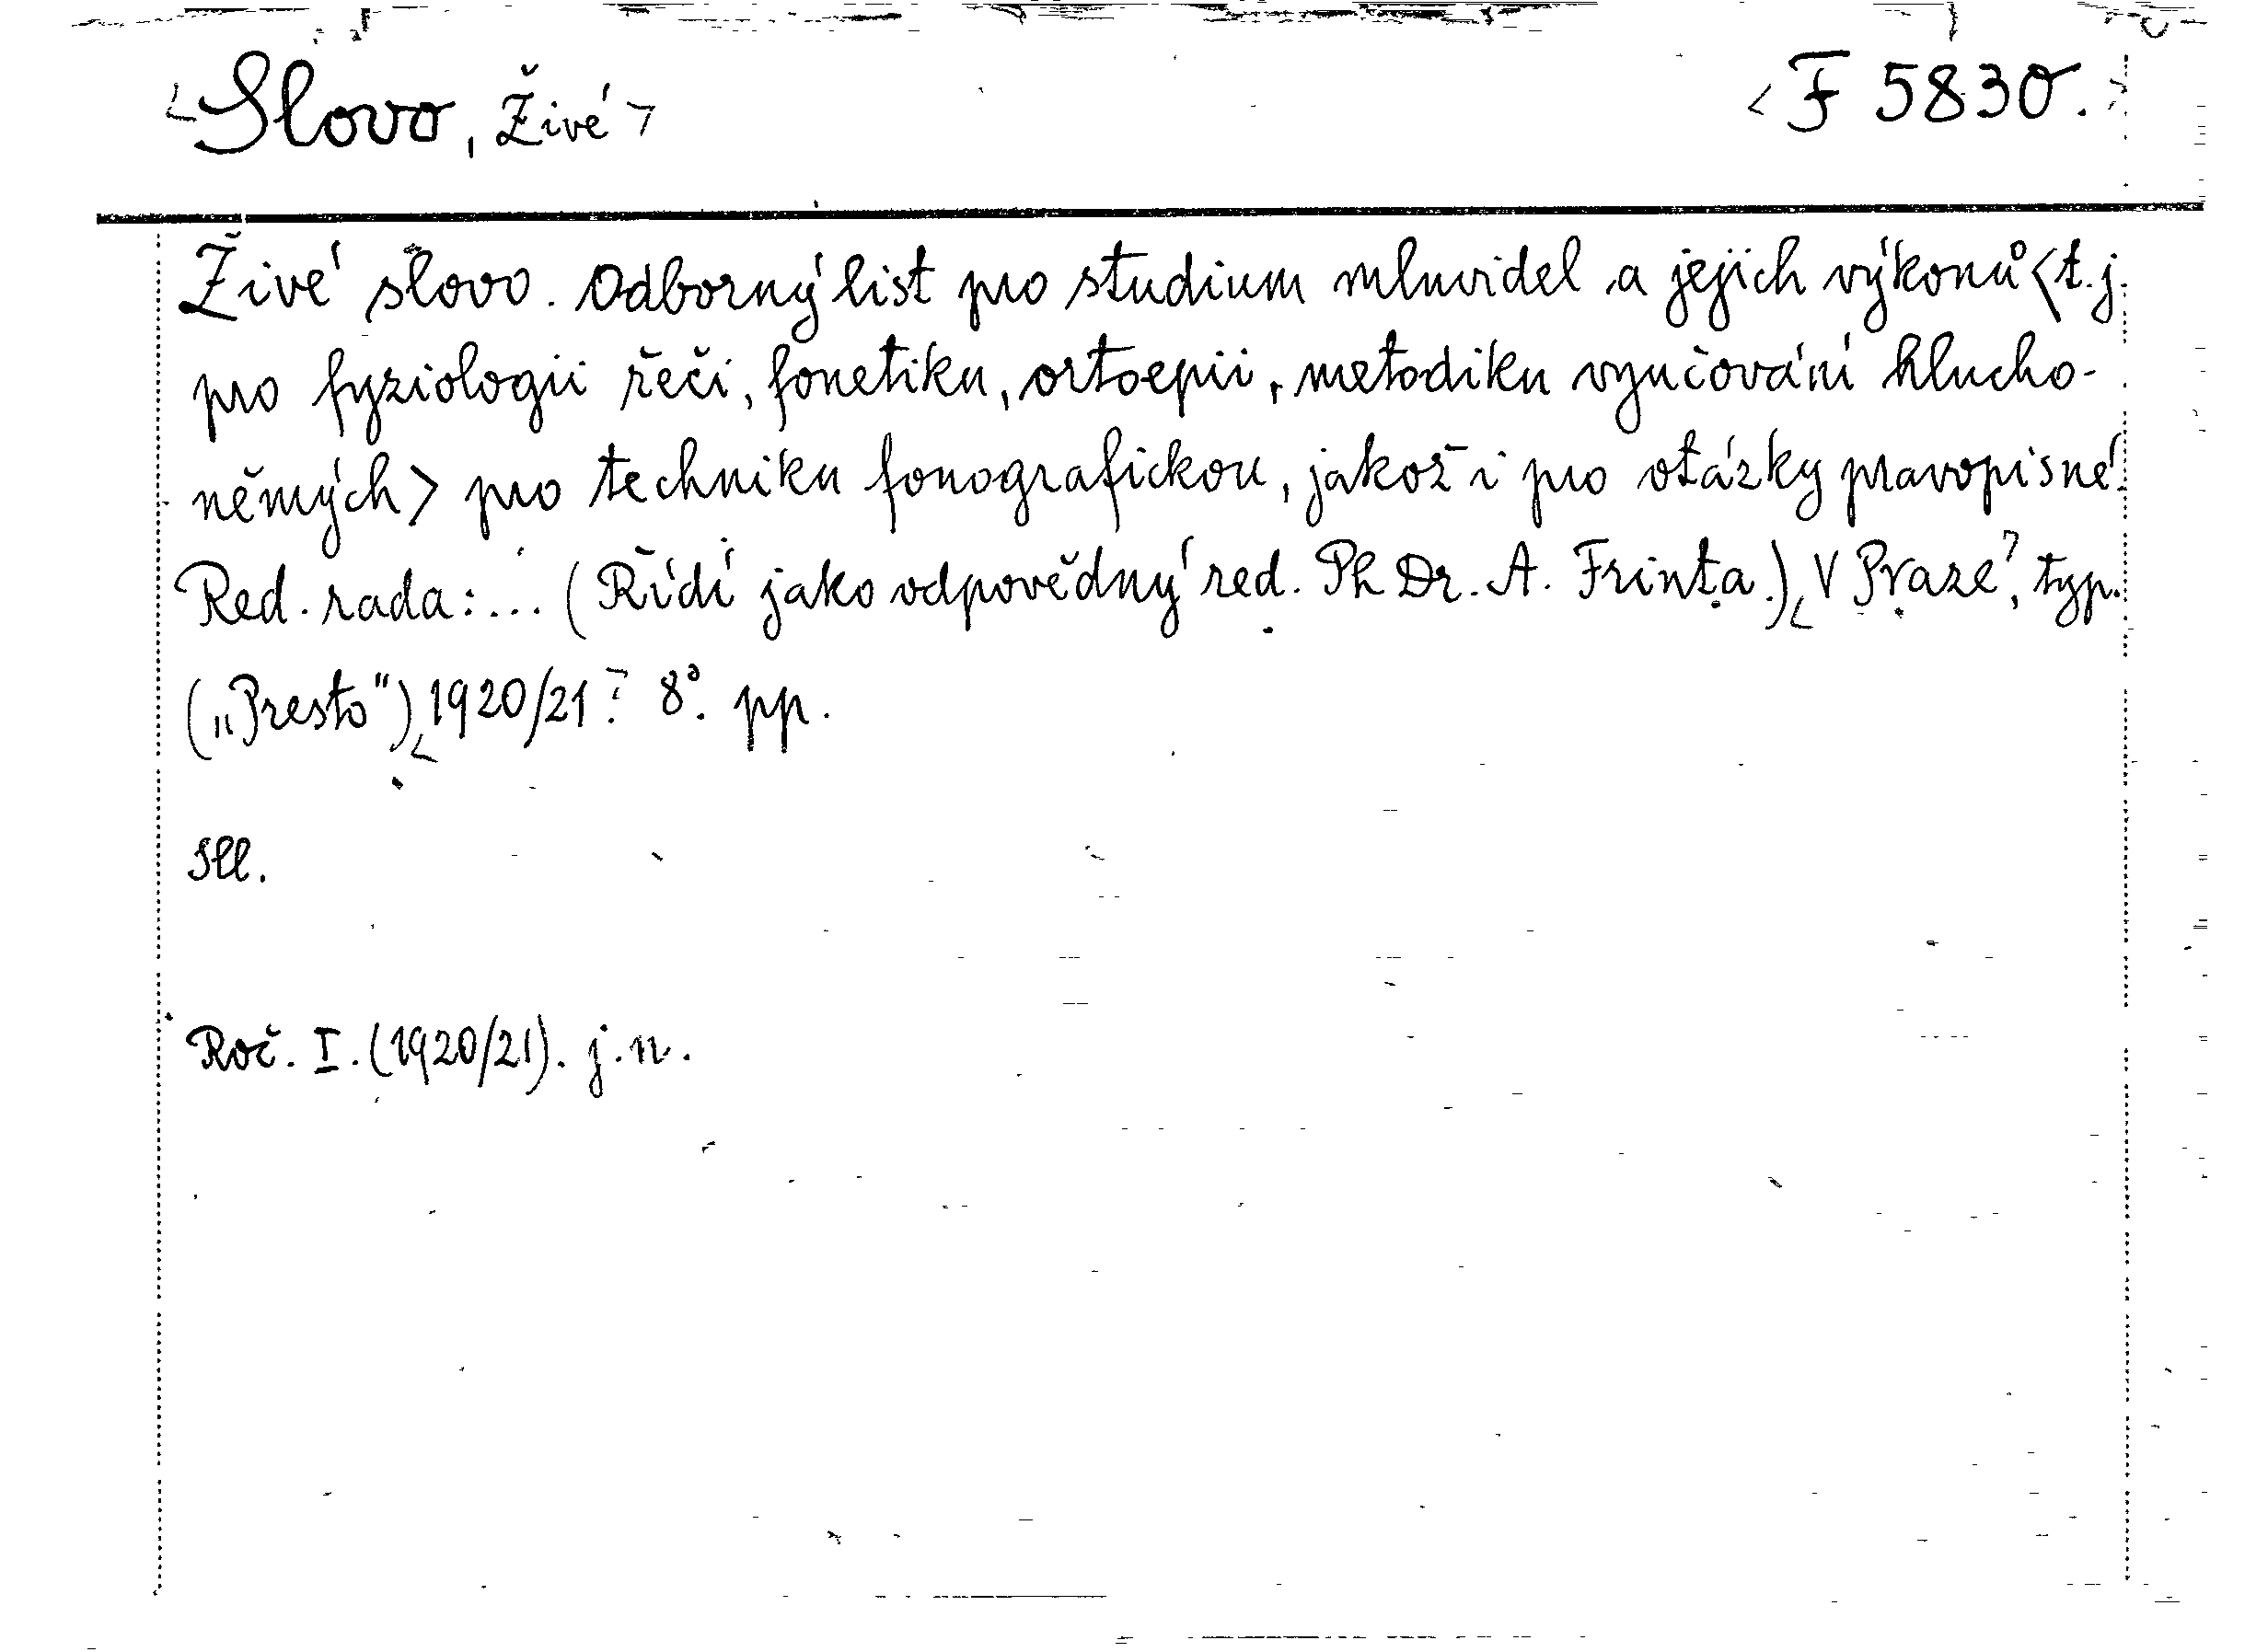 <Slovo, Živé>
<F 5830.>
Živé slovo. Odborný list pro studium mluvidel a jejich výkonů <t.j.
pro fyziologii řeči, fonetiku, ortoepii, metodiku vyučování hlucho-
němých> pro techniku fonografickou, jakož i pro otázky pravopisné.
Red. rada: ... (Řídí jako odpovědný red. PhDr. A. Frinta.) <V Praze>, typ.
(„Presto") <1920/21>. 8°. pp.
Ill.
Roč. I. (1920/21). j. n.